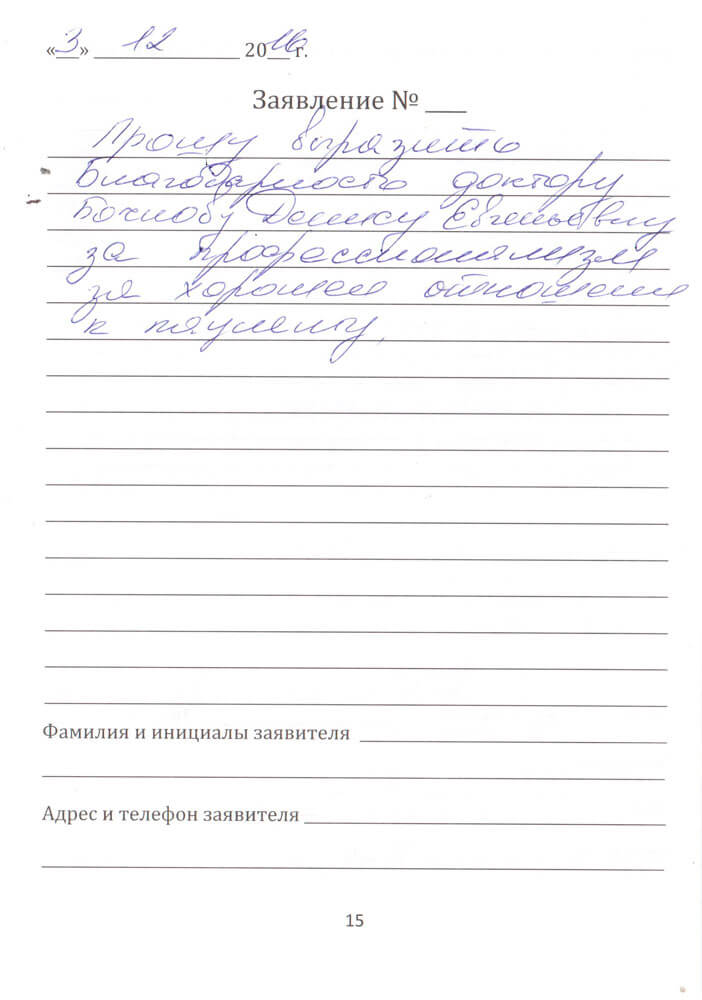 «3» 12 2016 г.
Заявление № ___
Прошу выразить
Благодарность доктору
Денису Евгеньевичу
за профессионализм
за хорошее отношение
к пациенту.
Фамилия и инициалы заявителя
Адрес и телефон заявителя
15